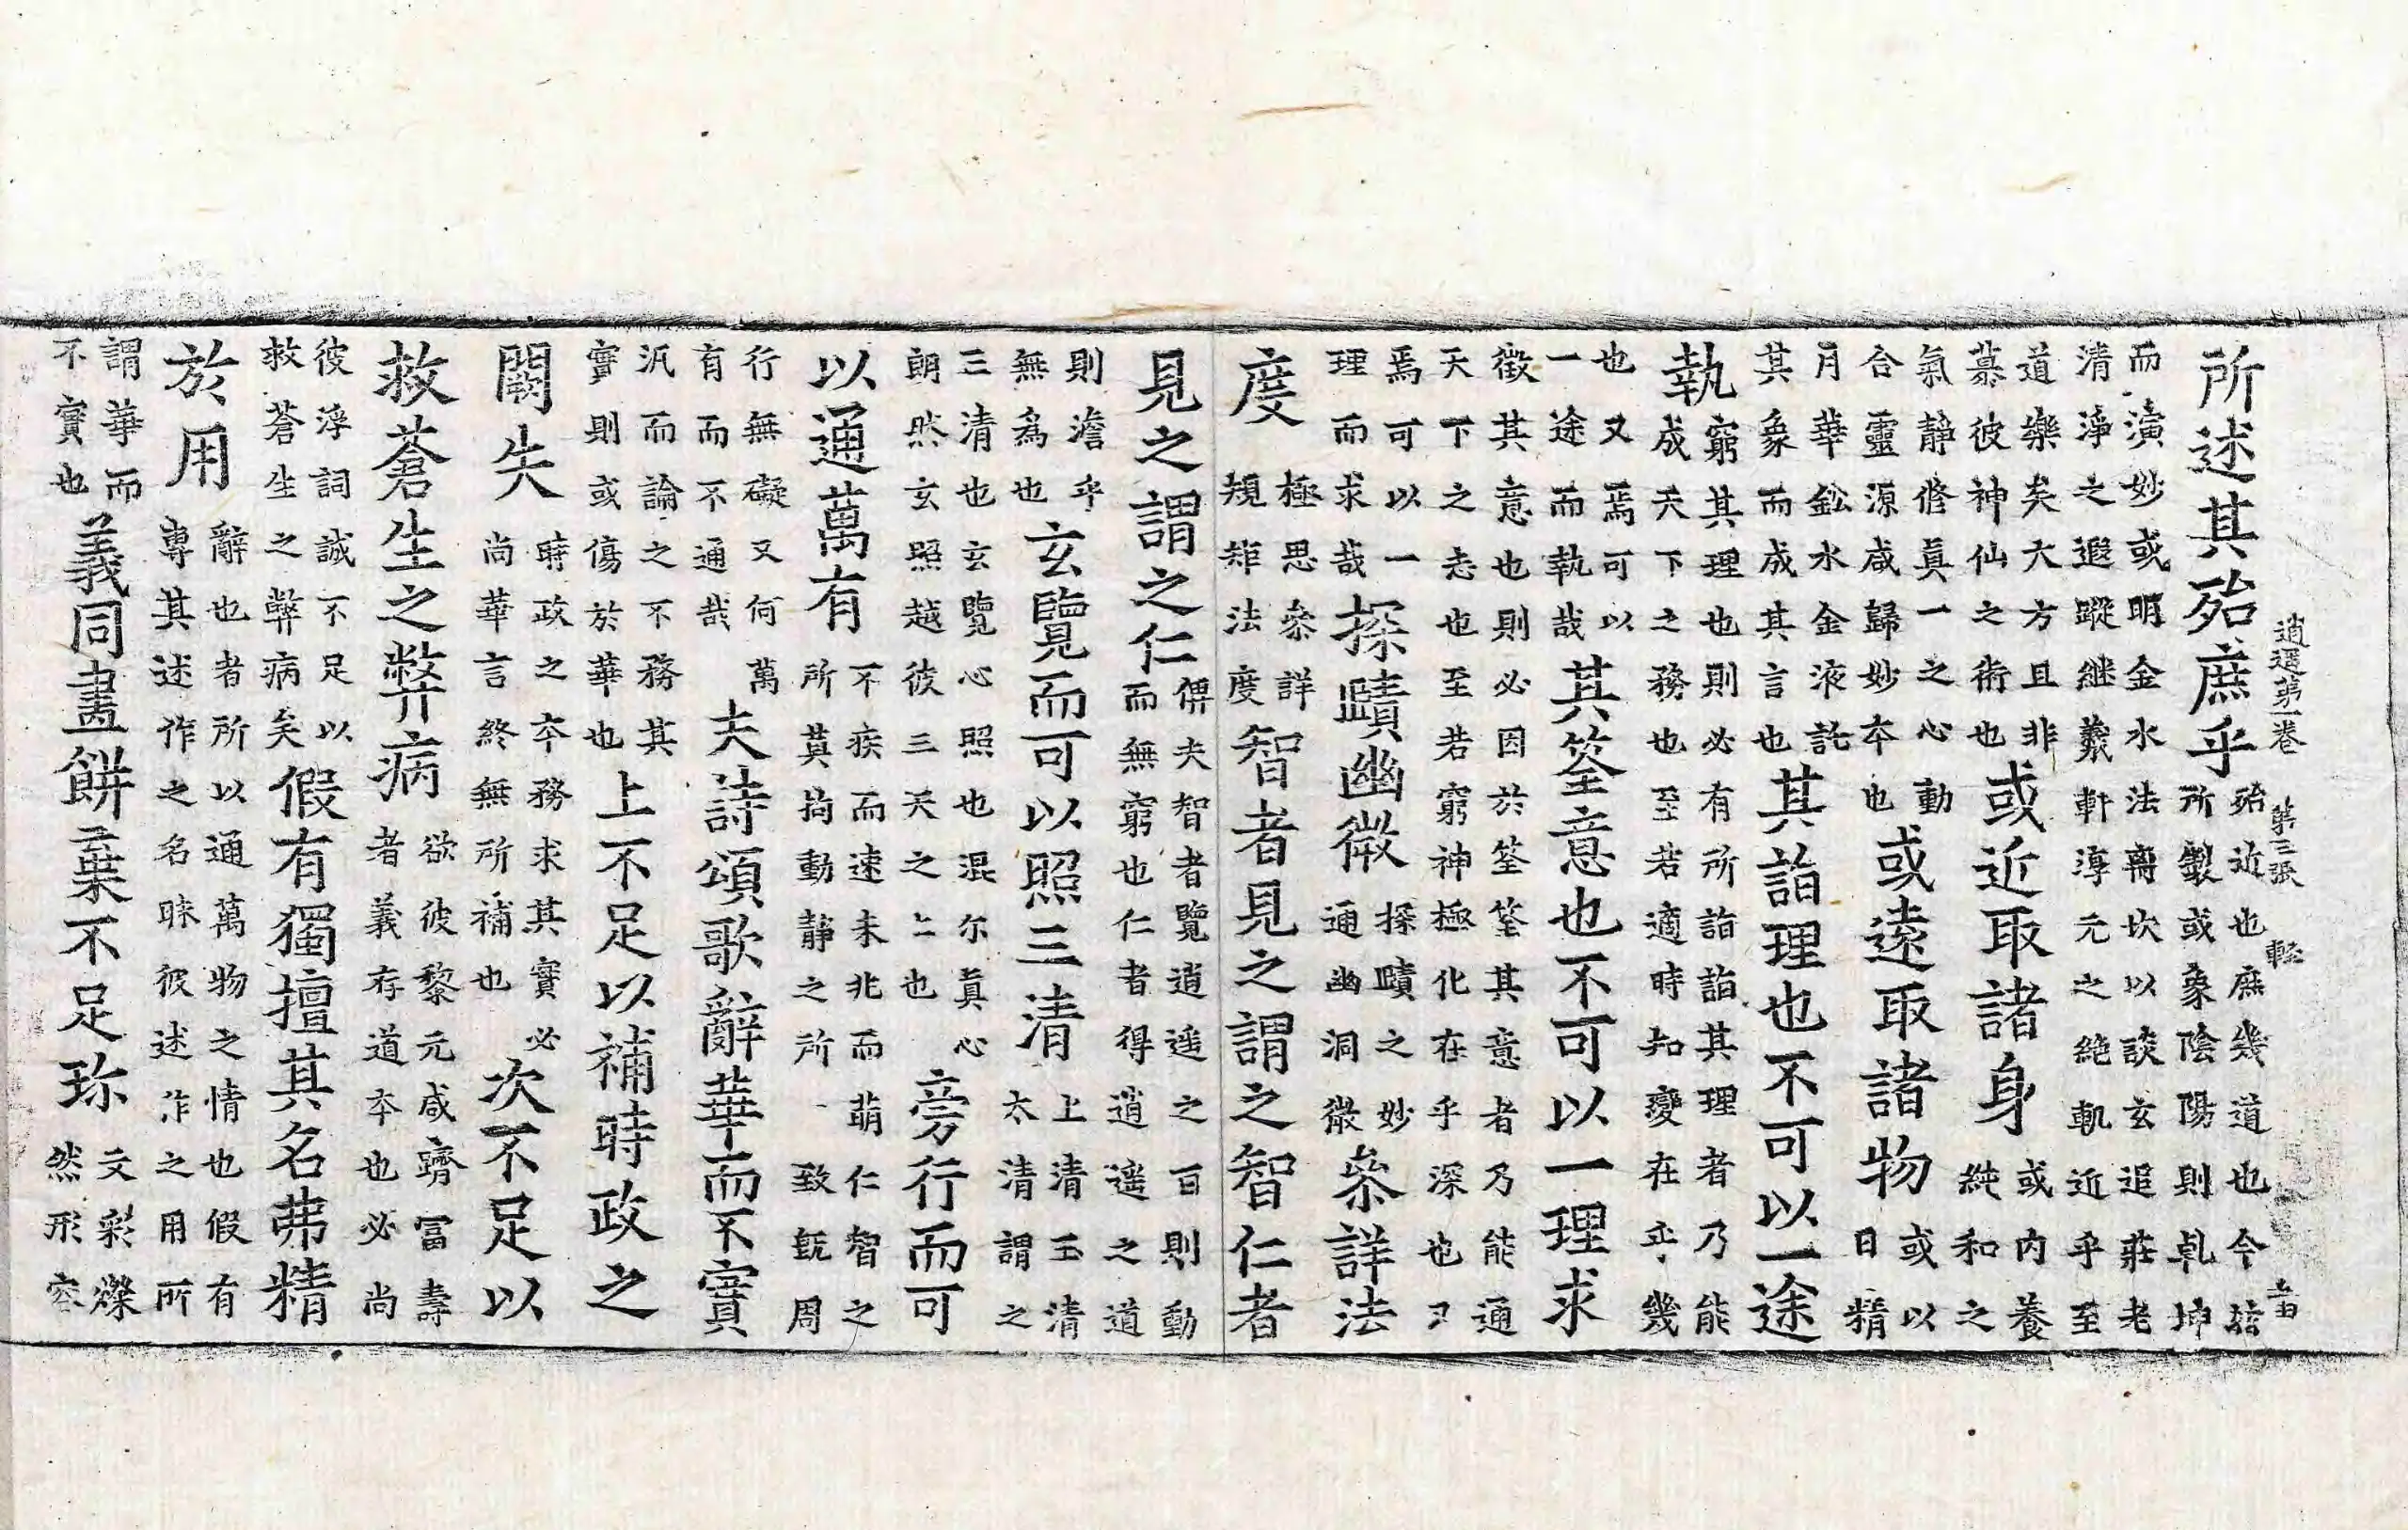 逍遥第一卷 第三張 輕
所述其殆庶乎殆近也庶幾道也今
所製或象陰陽則乹坤
而演妙或明金水法离坎以談玄追莊老
清淨之遐蹤継羲軒淳元之絶軌近乎至
道樂矣大方且非
慕彼神仙之術也或近取諸身或内養
純和之
氣静俻真一之心動
合靈源咸歸妙夲也或遠取諸物或以
日精
月華鈆水金液託
其象而成其言也其詣理也不可以一途
執窮其理也則必有所詣詣其理者乃能
成天下之務也至若適時知變在乎幾
也又焉可以
一途而執哉其筌意也不可以一理求
徵其意也則必因於筌筌其意者乃能通
天下之志也至若窮神極化在乎深也又
焉可以一
理而求哉探賾幽微探賾之妙
通幽洞微叅詳法
度極思叅詳
規矩法度智者見之謂之智仁者
見之謂之仁俾夫智者覽逍遥之百則動
而無窮也仁者得逍遥之道
則澹乎
無為也玄覽而可以照三清上清玉清
太清謂之
三清也玄覽心照也混尔真心
朗然玄照越彼三天之上也旁行而可
以通萬有不疾而速未兆而萌仁智之
所莫動靜之所致旣周
行無礙又何萬
有而不通哉夫詩頌歌辭華而不實
汎而論之不務其
實則或傷於華也上不足以補時政之
闕失時政之夲務求其實必
尚華言終無所補也次不足以
救蒼生之弊病欲彼黎元咸躋冨壽
者義存道夲也必尚
彼浮詞誠不足以
救蒼生之弊病矣假有獨擅其名弗精
於用辭也者所以通萬物之情也假有
專其述作之名昧彼述作之用所
謂華而
不實也義同畫餅葉不足珎文彩燦
然形容